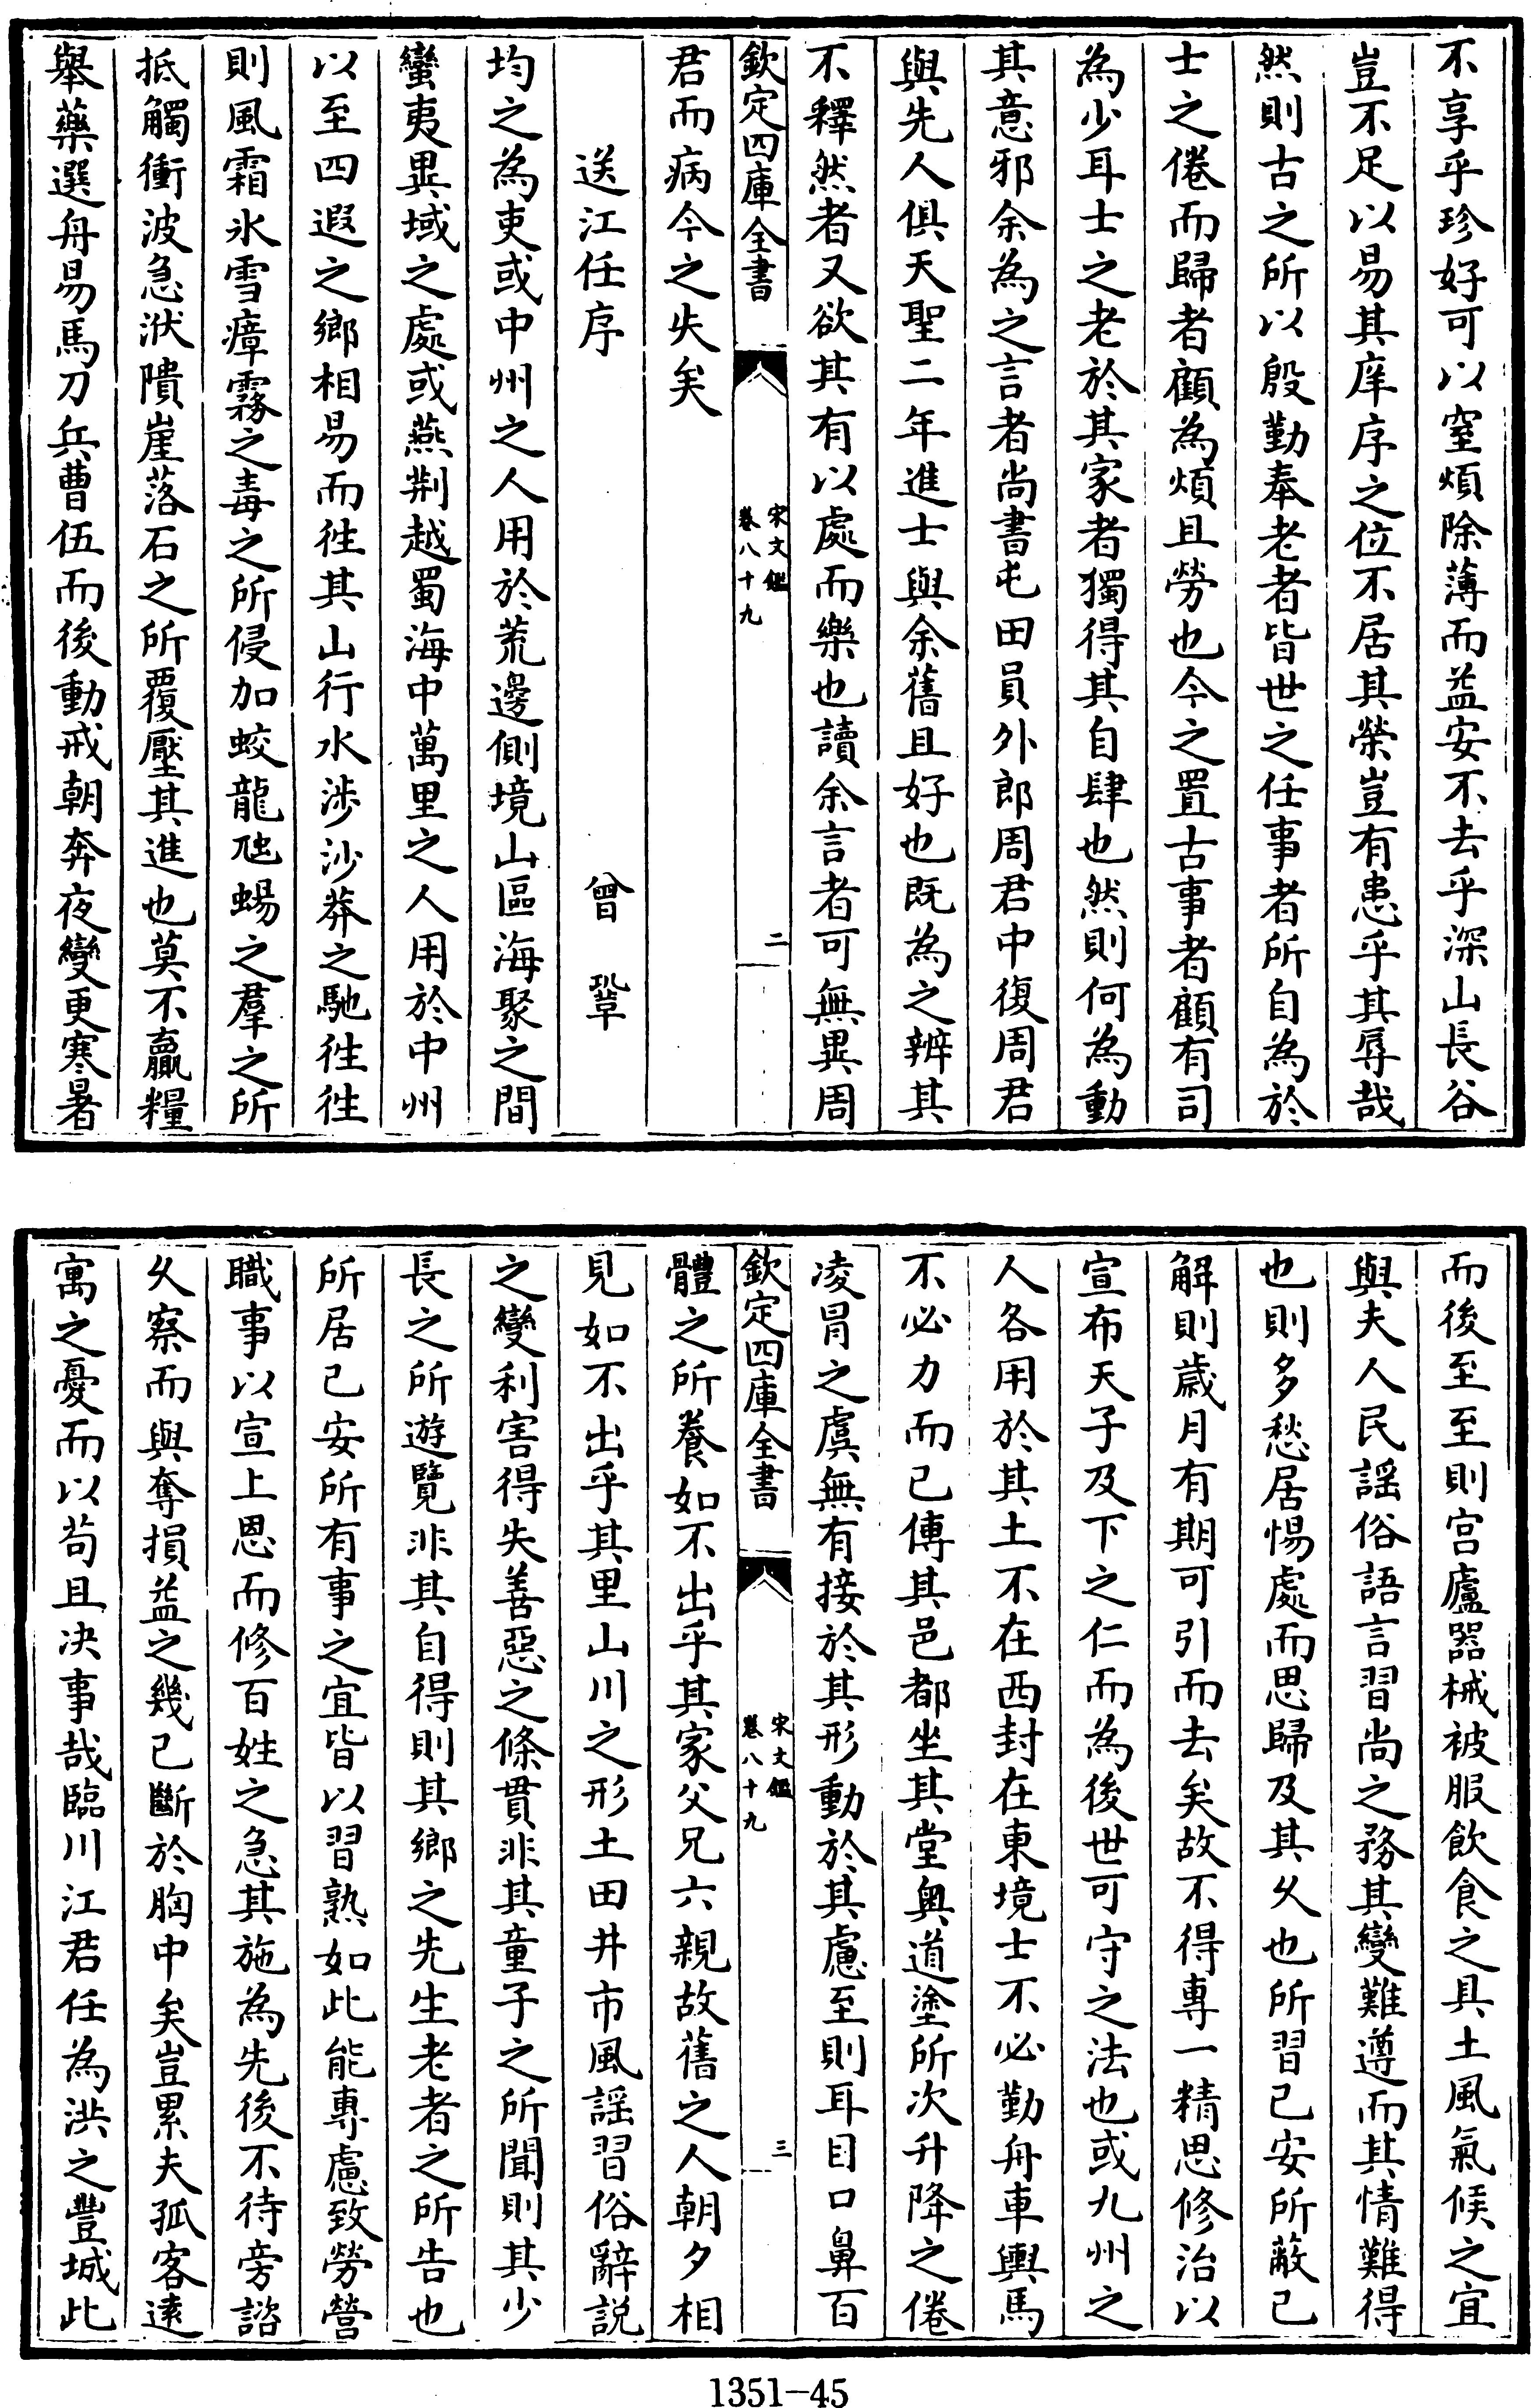 不享乎珍好可以窒煩除薄而益安不去乎深山長谷
豈不足以易其庠序之位不居其榮豈有患乎其辱哉
然則古之所以殷勤奉老者皆世之任事者所自為於
士之倦而歸者顧為煩且勞也今之置古事者顧有司
為少耳士之老於其家者獨得其自肆也然則何為動
其意邪余為之言者尚書屯田員外郎周君中復周君
與先人俱天聖二年進士與余舊且好也既為之辨其
不釋然者又欲其有以處而樂也讀余言者可無異周
欽定四庫全書
宋文鑑
卷八十九
二
君而病今之失矣
送江任序 曾鞏
均之為吏或中州之人用於荒邊側境山區海聚之間
蠻夷異域之處或燕荆越蜀海中萬里之人用於中州
以至四遐之鄉相易而徃其山行水涉沙莽之馳徃徃
則風霜氷雪瘴霧之毒之所侵加蛟龍虺蜴之羣之所
抵觸衝波急洑隤崖落石之所覆壓其進也莫不贏糧
舉藥選舟易馬刀兵曹伍而後動戒朝奔夜變更寒暑
而後至至則宫廬器械被服飲食之具土風氣候之宜
與夫人民謡俗語言習尚之務其變難遵而其情難得
也則多愁居惕處而思歸及其乆也所習已安所蔽已
解則歲月有期可引而去矣故不得專一精思修治以
宣布天子及下之仁而為後世可守之法也或九州之
人各用於其土不在西封在東境士不必勤舟車輿馬
不必力而已傳其邑都坐其堂奥道塗所次升降之倦
凌冒之虞無有接於其形動於其慮至則耳目口鼻百
欽定四庫全書
宋文鑑
卷八十九
三
體之所養如不出乎其家父兄六親故舊之人朝夕相
見如不出乎其里山川之形土田井市風謡習俗辭説
之變利害得失善惡之條貫非其童子之所聞則其少
長之所遊覽非其自得則其鄉之先生老者之所告也
所居已安所有事之宜皆以習熟如此能專慮致勞營
職事以宣上恩而修百姓之急其施為先後不待旁諮
乆察而與奪損益之幾已斷於胸中矣豈累夫孤客逺
寓之憂而以苟且决事哉臨川江君任為洪之豐城此
1351-45